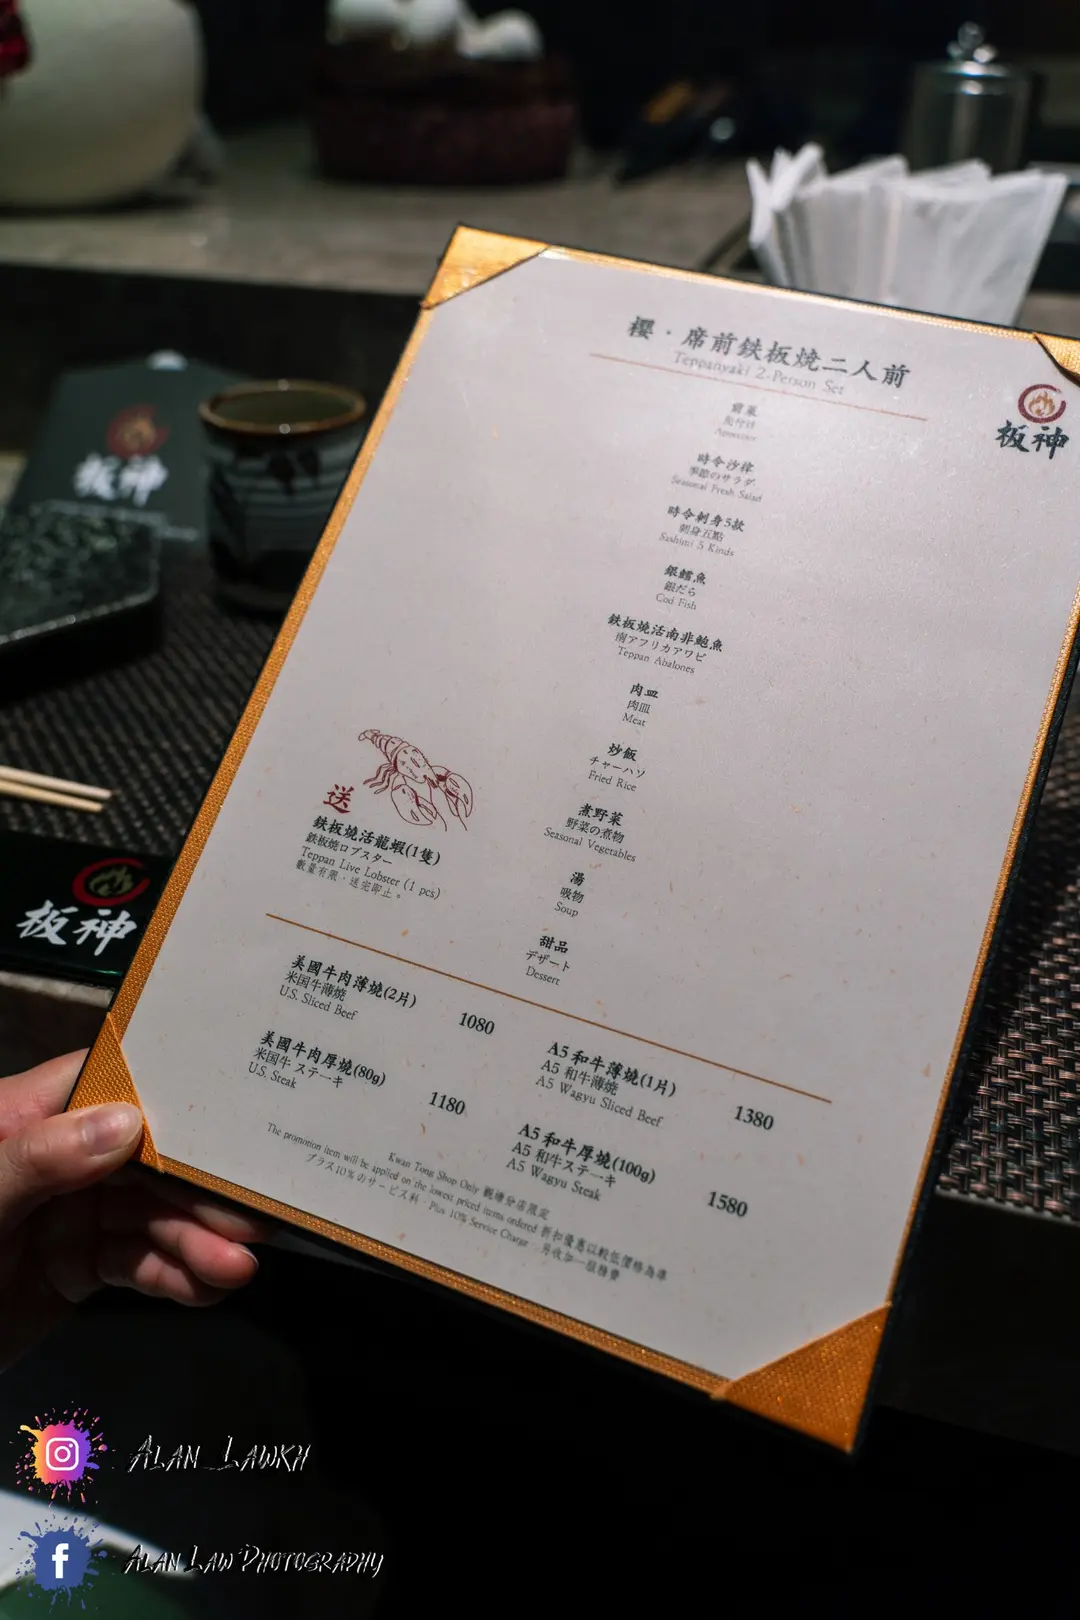 櫻・席前鉄板焼二人前
Teppanyaki 2-Person Set
板神
前菜
Appetizer
時令沙律
季節のサラダ
Seasonal Fresh Salad
時令刺身5款
刺身五點
Sashimi 5 Kinds
銀鱈魚
銀だら
Cod Fish
鉄板燒活南非鮑魚
南アフリカアワビ
Teppan Abalones
肉皿
肉皿
Meat
炒飯
チャーハン
Fried Rice
煮野菜
野菜の煮物
Seasonal Vegetables
湯
吸物
Soup
甜品
デザート
Dessert
送
鉄板燒活龍蝦(1隻)
鉄板焼ロブスター
Teppan Live Lobster (1 pcs)
數量有限，送完即止。
美國牛肉薄燒(2片)
米国牛薄焼
U.S. Sliced Beef
1080
美國牛肉厚燒(80g)
米国牛 ステーキ
U.S. Steak
1180
A5 和牛薄燒(1片)
A5 和牛薄焼
A5 Wagyu Sliced Beef
1380
A5 和牛厚燒(100g)
A5 和牛ステーキ
A5 Wagyu Steak
1580
Kwan Tong Shop Only 觀塘分店限定
The promotion item will be applied on the lowest priced items ordered 折扣優惠以較低價格為準
プラス10%のサービス料・Plus 10% Service Charge・另收加一服務費
板神
板神
ALAN_LAWKH
ALAN LAW PHOTOGRAPHY